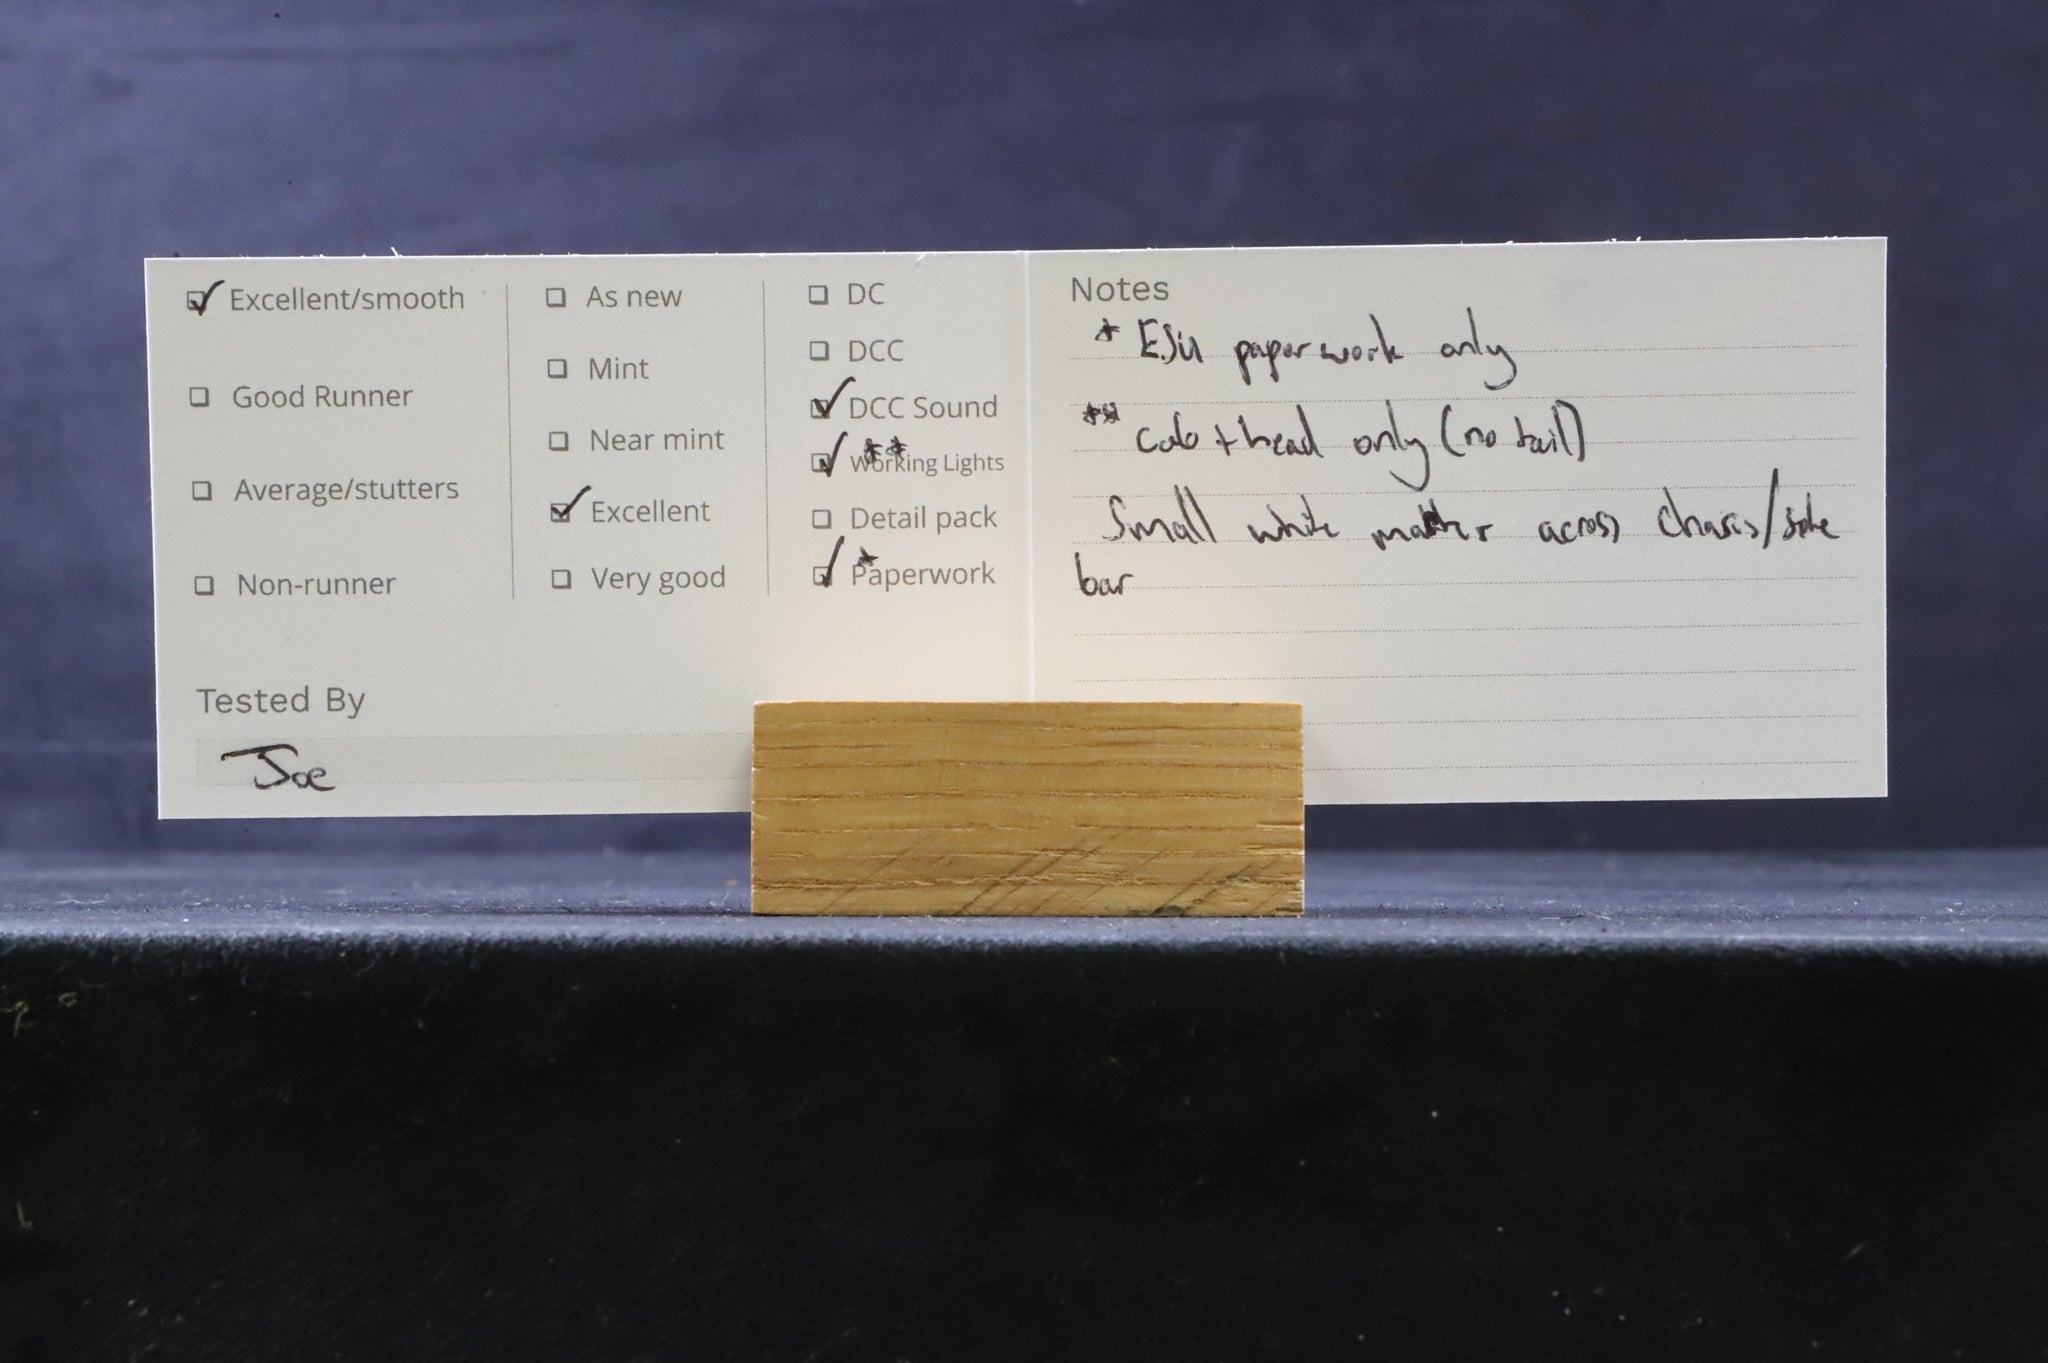 Excellent/smooth
Good Runner
Average/stutters
Non-runner
As new
Mint
Near mint
Excellent
Very good
DC
DCC
DCC Sound
**
Working Lights
Detail pack
*
Paperwork
Tested By
Joe
Notes
* ESU paperwork only
** cab + head only (no tail)
Small white matter across chasis/side
bar